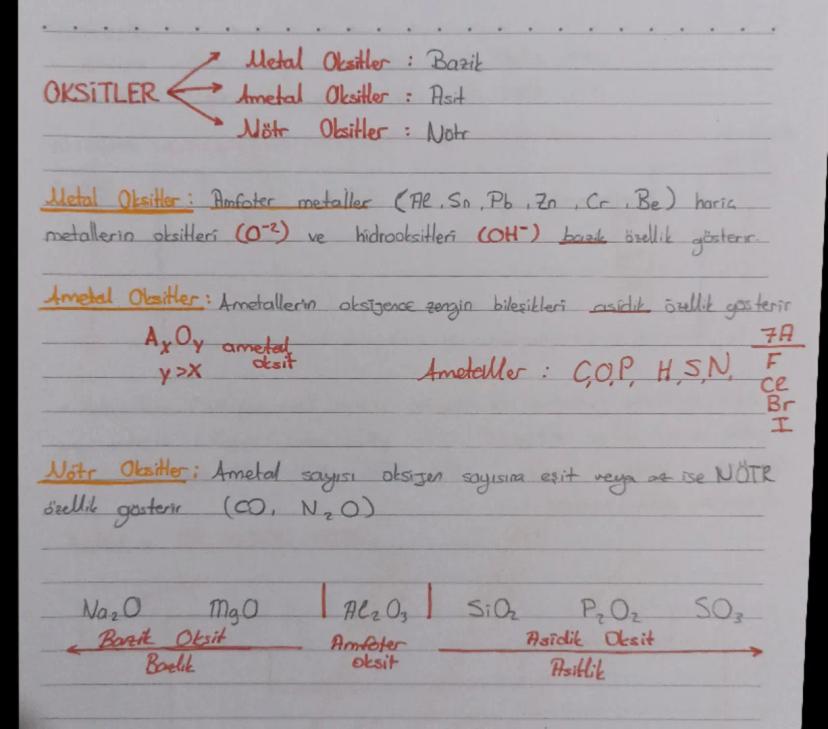 Metal Oksitler : Bazik
OKSİTLER
Ametal Oksitler : Asit
Nötr Oksitler : Nötr
Metal Oksitler : Amfoter metaller (Al, Sn, Pb, Zn, Cr, Be) hariç
metallerin oksitleri (O⁻²) ve hidrooksitleri (OH⁻) bazik özellik gösterir.
Ametal Oksitler : Ametallerin oksijence zengin bileşikleri asidik özellik gösterir
AₓOᵧ ametal oksit
y>x
Ametaller : C, O, P, H, S, N,
7A
F
Cl
Br
I
Nötr Oksitler : Ametal sayısı oksijen sayısına eşit veya ise NÖTR
özellik gösterir (CO, N₂O)
Na₂O MgO | Al₂O₃ | SiO₂ P₂O₂ SO₃
Bazik Oksit Amfoter oksit Asidik Oksit
Bazlik Asitlik